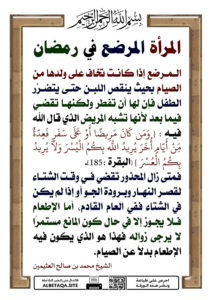 بسم الله الرحمن الرحيم
المرأة المرضع في رمضان
المرضع إذا كانت تخاف على ولدها من
الصيام بحيث ينقص اللبن حتى يتضرر
الطفل فإن لها أن تفطر ولكنها تقضي
فيما بعد لأنها تشبه المريض الذي قال الله
فيه : ( وَمَن كَانَ مَرِيضًا أَوْ عَلَىٰ سَفَرٍ فَعِدَّةٌ
مِّنْ أَيَّامٍ أُخَرَ يُرِيدُ اللَّهُ بِكُمُ الْيُسْرَ وَلَا يُرِيدُ
بِكُمُ الْعُسْرَ ) البقرة :185.
فمتى زال المحذور تقضي في وقت الشتاء
لقصر النهار وبرودة الجو أو إذا لم يكن
في الشتاء ففي العام القادم، أما الإطعام
فلا يجوز إلا في حال كون المانع مستمراً
لا يرجى زواله فهذا هو الذي يكون فيه
الإطعام بدلاً عن الصيام.
الشيخ محمد بن صالح العثيمين
ALBETAQA.SITE
احرص على طباعة
ونشر هذه الورقة